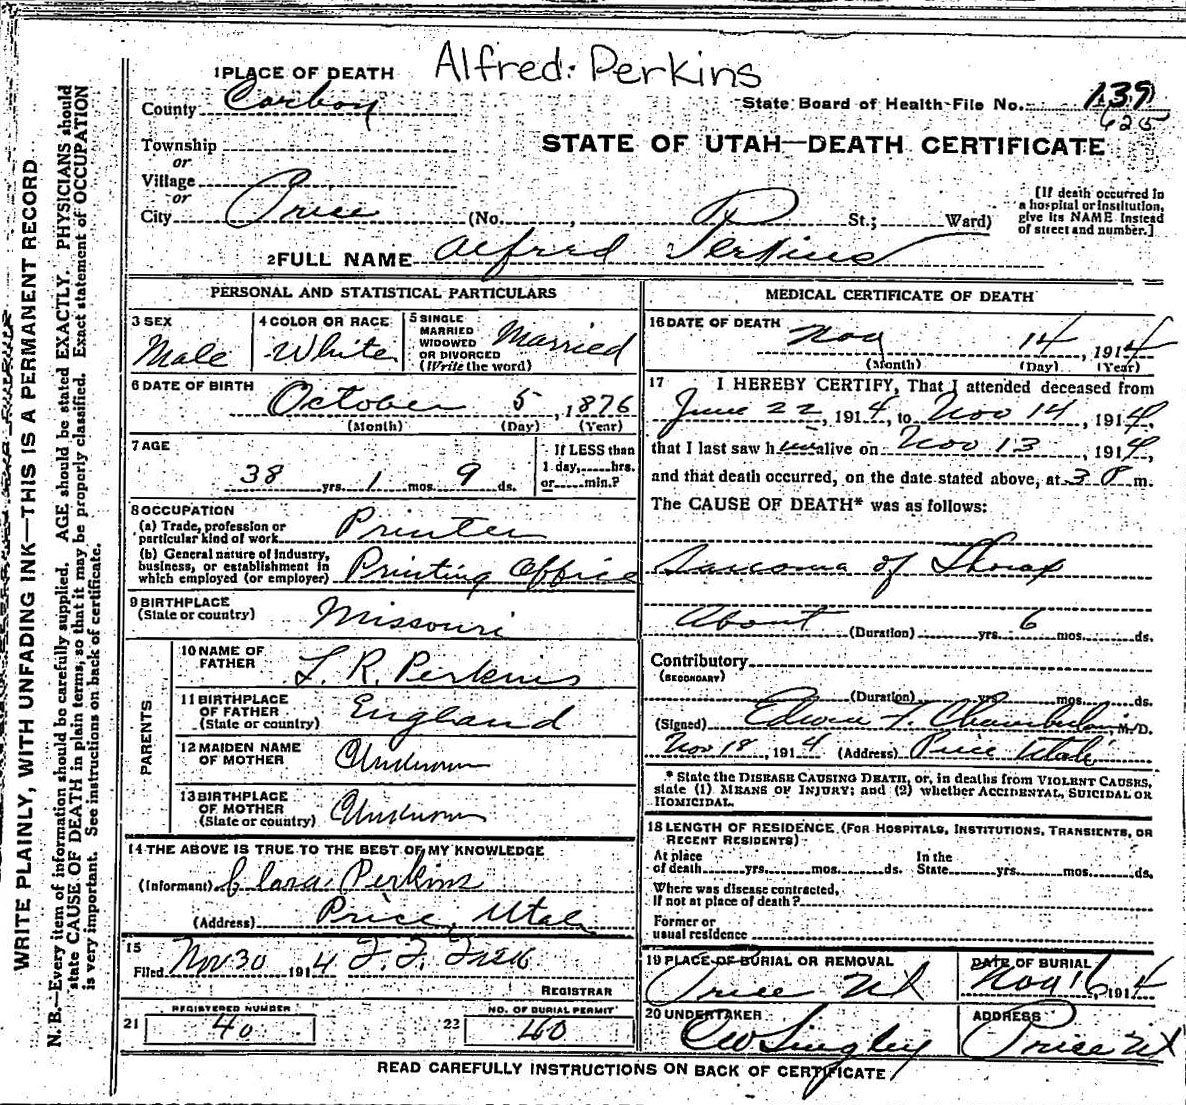 Alfred Perkins
1 PLACE OF DEATH
County Carbon
State Board of Health File No. 139
625
Township
or
Village
or
City Price (No. , St.; Ward)
STATE OF UTAH—DEATH CERTIFICATE
[If death occurred in
a hospital or institution,
give its NAME instead
of street and number.]
2 FULL NAME Alfred Perkins
PERSONAL AND STATISTICAL PARTICULARS
3 SEX
Male
4 COLOR OR RACE
White
5 SINGLE
MARRIED
WIDOWED
OR DIVORCED
(Write the word)
Married
6 DATE OF BIRTH
October 5, 1876
(Month) (Day) (Year)
7 AGE
38 yrs. 1 mos. 9 ds.
If LESS than
1 day, hrs.
or min.?
8 OCCUPATION
(a) Trade, profession or
particular kind of work Printer
(b) General nature of Industry,
business, or establishment in
which employed (or employer) Printing Office
9 BIRTHPLACE
(State or country) Missouri
PARENTS
10 NAME OF
FATHER
R. Perkins
11 BIRTHPLACE
OF FATHER
(State or country) England
12 MAIDEN NAME
OF MOTHER Unknown
13 BIRTHPLACE
OF MOTHER
(State or country) Unknown
14 THE ABOVE IS TRUE TO THE BEST OF MY KNOWLEDGE
(Informant) Clara Perkins
(Address) Price, Utah
15
Filed Nov 30 1914
REGISTRAR
21
REGISTERED NUMBER
40
22
NO. OF BURIAL PERMIT
460
MEDICAL CERTIFICATE OF DEATH
16 DATE OF DEATH
Nov 14, 1914
(Month) (Day) (Year)
17 I HEREBY CERTIFY, That I attended deceased from
June 22, 1914, to Nov 14, 1914,
that I last saw h im alive on Nov 13, 1914,
and that death occurred, on the date stated above, at 3 P m.
The CAUSE OF DEATH* was as follows:
Sarcoma of Thorax
About (Duration) yrs. 6 mos. ds.
Contributory
(SECONDARY)
(Duration) yrs. mos. ds.
(Signed) Chamberlain, M.D.
Nov 18, 1914 (Address) Price Utah
* State the DISEASE CAUSING DEATH, or, in deaths from VIOLENT CAUSES,
state (1) MEANS OF INJURY; and (2) whether ACCIDENTAL, SUICIDAL OR
HOMICIDAL.
18 LENGTH OF RESIDENCE (FOR HOSPITALS, INSTITUTIONS, TRANSIENTS, OR
RECENT RESIDENTS)
At place
of death yrs. mos. ds.
In the
State yrs. mos. ds.
Where was disease contracted,
If not at place of death?
Former or
usual residence
19 PLACE OF BURIAL OR REMOVAL
Price Ut
DATE OF BURIAL
Nov 16, 1914
20 UNDERTAKER
ADDRESS
Price Ut
READ CAREFULLY INSTRUCTIONS ON BACK OF CERTIFICATE
WRITE PLAINLY, WITH UNFADING INK—THIS IS A PERMANENT RECORD
N. B.—Every item of information should be carefully supplied. AGE should be stated EXACTLY. PHYSICIANS should
state CAUSE OF DEATH in plain terms, so that it may be properly classified. Exact statement of OCCUPATION
is very important. See instructions on back of certificate.